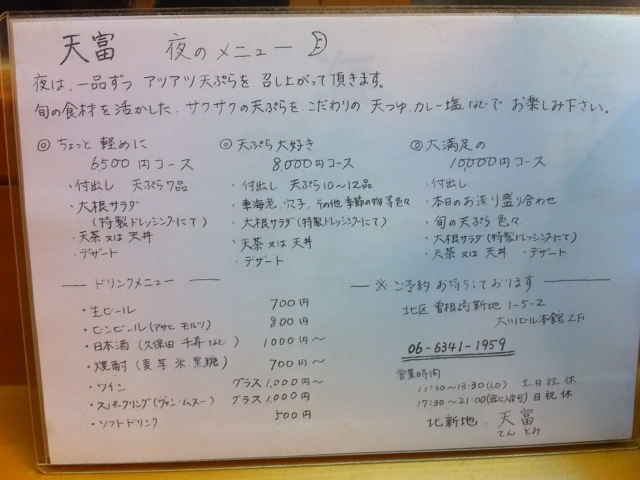 天富　夜のメニュー
夜は、一品ずつ アツアツ天ぷらを 召し上がって頂きます。
旬の食材を活かした、サクサクの天ぷらを、こだわりの 天つゆ、カレー塩などで お楽しみ下さい。
◎ちょっと 軽めに
6500円コース
・付出し 天ぷら7品
・大根サラダ
(特製ドレッシングにて)
・天茶又は天丼
・デザート
◎天ぷら大好き
8,000円コース
・付出し 天ぷら10〜12品
・車海老、穴子、その他季節の物等色々
・大根サラダ(特製ドレッシングにて)
・天茶 又は 天丼
・デザート
◎大満足の
10,000円コース
・付出し
・本日のお造り盛り合わせ
・旬の天ぷら 色々
・大根サラダ(特製ドレッシングにて)
・天茶 又は 天丼 ・デザート
ドリンクメニュー
・生ビール 700円
・ビンビール(アサヒ モルツ) 800円
・日本酒(久保田 千寿 など) 1000円〜
・焼酎(麦 芋 米 黒糖) 700円〜
・ワイン グラス1,000円〜
・スパークリング(ヴァン・ムスー) グラス1,000円
・ソフトドリンク 500円
※ご予約 お待ちしております
北区 曽根崎新地 1-5-2
大川ビル本館 2F
06-6341-1959
営業時間
11:30〜13:30(LO) 土日祝 休
17:30〜21:00 日祝 休
北新地 天富
てん とみ